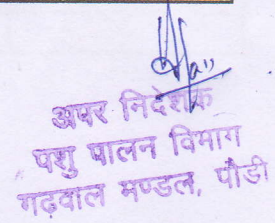 अपर निदेशक
पशु पालन विभाग
गढ़वाल मण्डल, पौडी